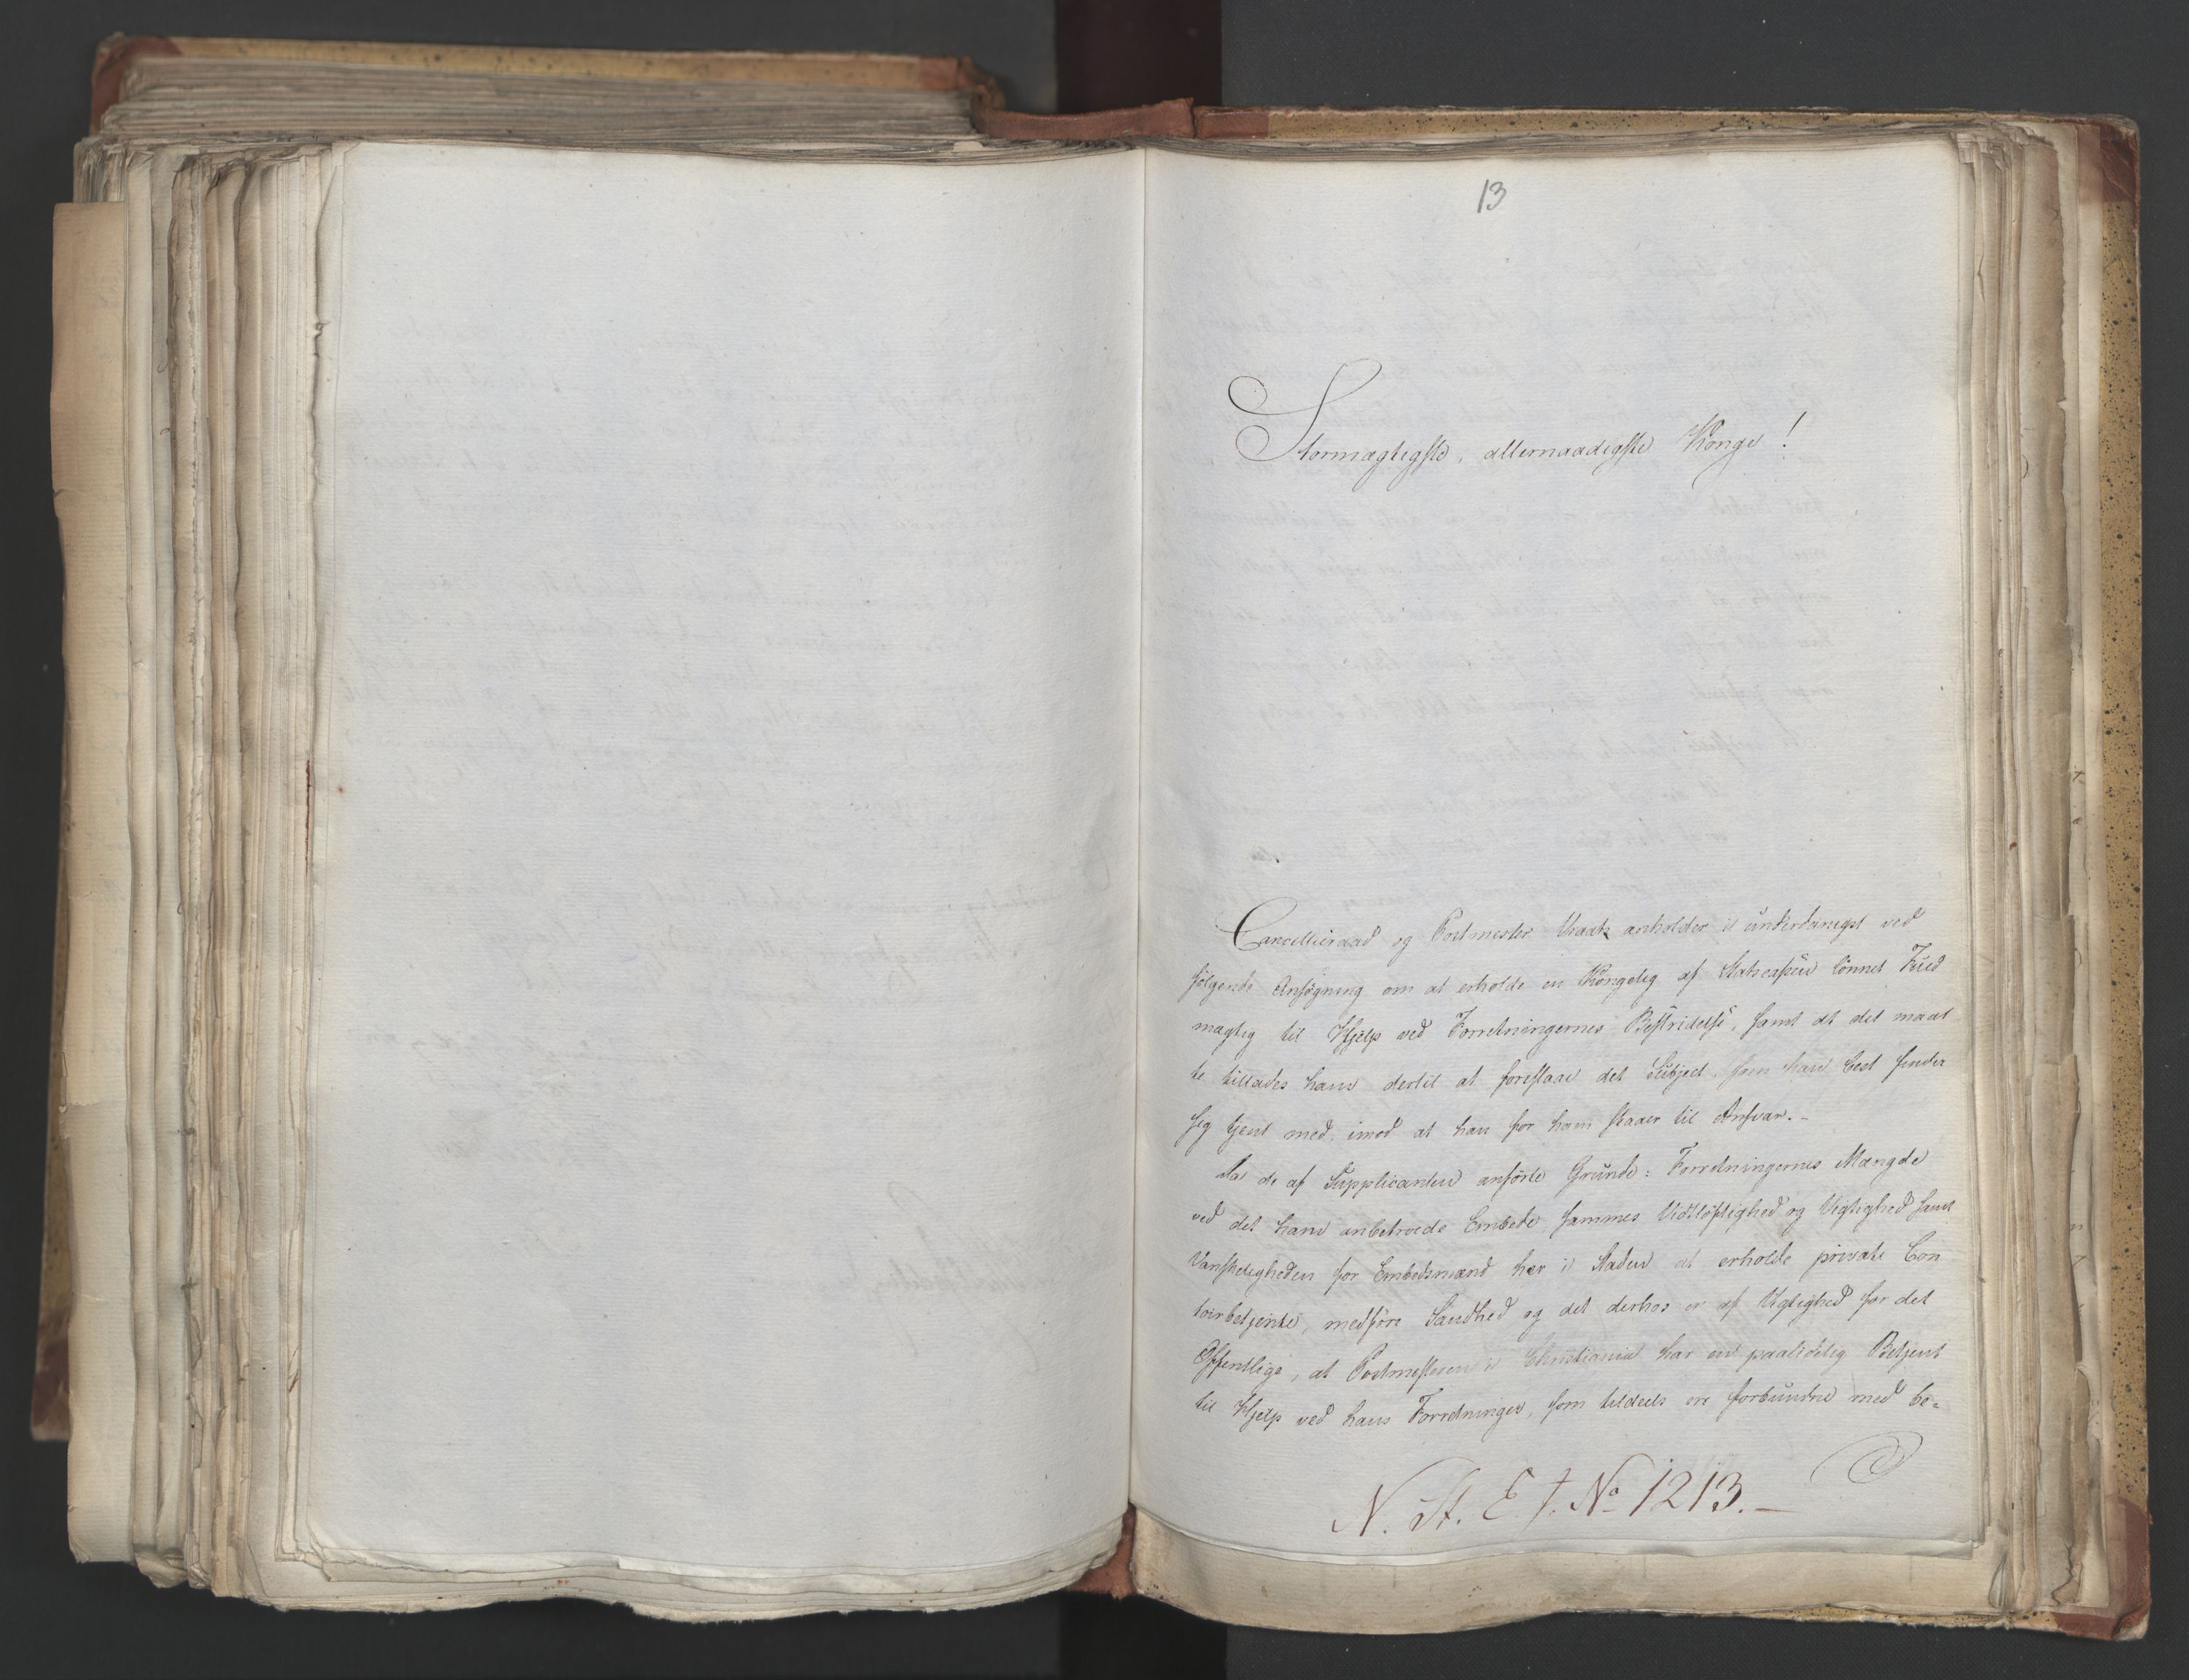 13
Stormægtigste, allernaadigste Konge!
Cancellieraad og Postmester Kraatz anholder i underdanigst ved
følgende Ansøgning om at erholde en Kongelig af Statscassen lönnet Fuld
mægtig til Hjelp ved Forretningernes Bestridelse, samt at det maat
te tillades ham dertil at foreslaae det Subject, som han best finder
sig tjent med, imod at han for ham staaer til Ansvar.-
Da de af Supplicanten anførte Grunde: Forretningernes Mængde
ved det ham anbetroede Embede, sammes Vidtløftighed og Vigtighed samt
Vanskeligheden for Embedsmænd her i Staden at erholde private Con
toirbetjente, medføre Sandhed og det derhos er af Vigtighed for det
Offentlige, at Postmesteren i Christiania har en paalidelig Betjent
til Hjelp ved hans Forretninger, som tildeels ere forbundne med be=
N. St. E. J. No 1213.-